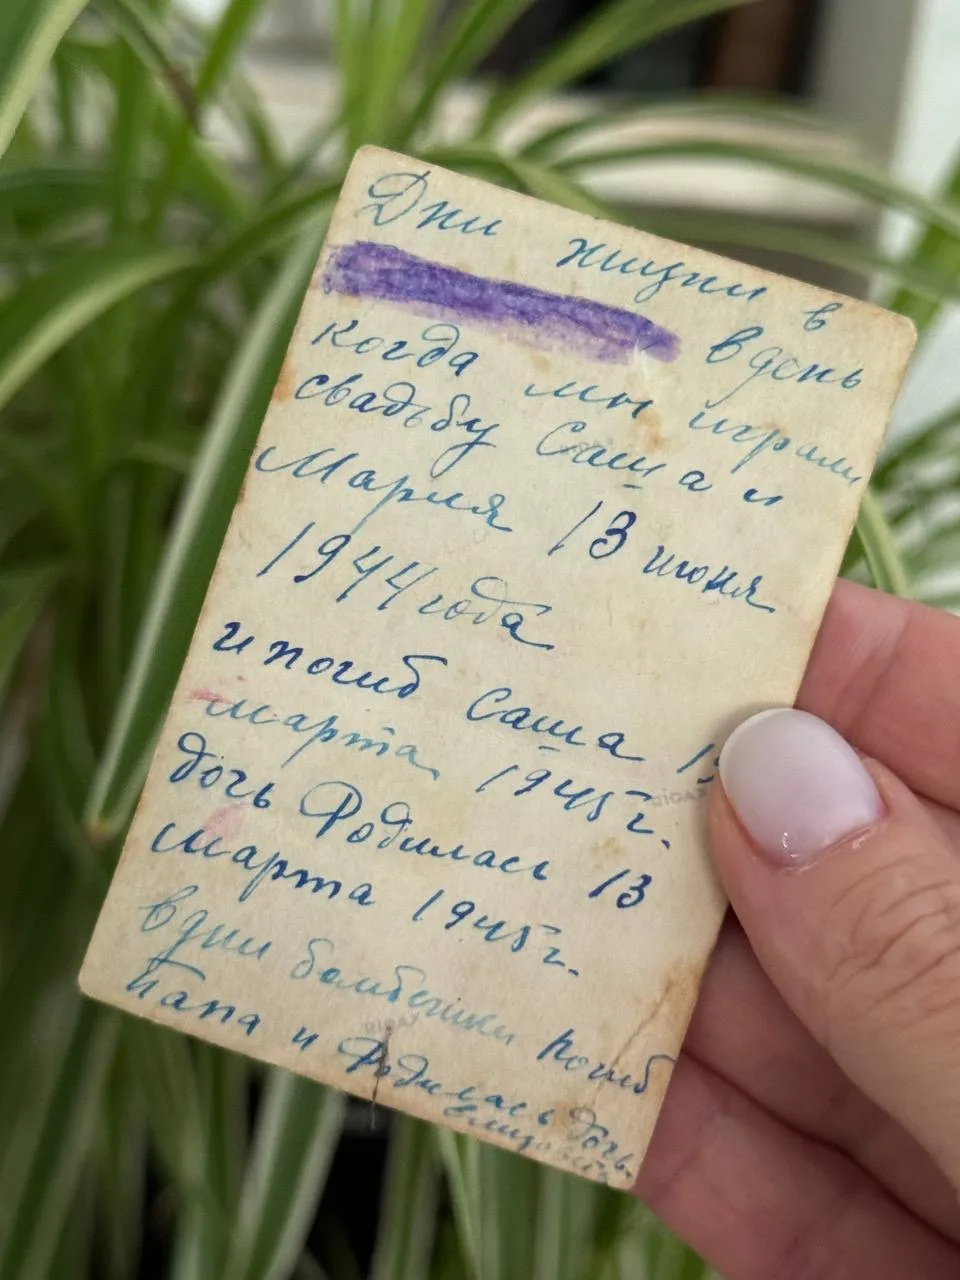 Дни жизни в
вдень
когда мы играли
свадьбу Саша и
Мария 13 июня
1944 года
и погиб Саша
марта 1945 г.
RIGAX
дочь Родилась 13
марта 1945 г.
в дни бомбешки погиб
RIGAX
папа и Родилась дочь